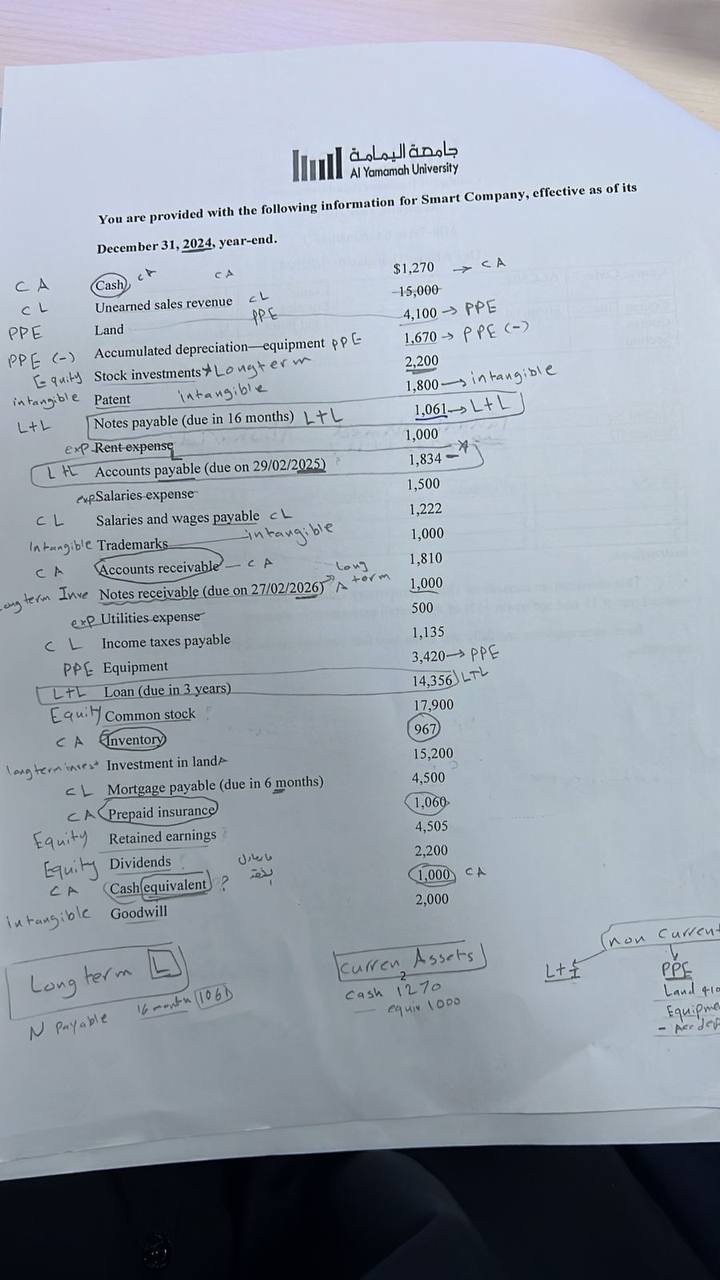 جامعة اليمامة
Al Yamamah University
You are provided with the following information for Smart Company, effective as of its
December 31, 2024, year-end.
CA Cash CA CA $1,270 → CA
CL Unearned sales revenue CL 15,000
PPE Land PPE 4,100 → PPE
PPE (-) Accumulated depreciation—equipment PPE 1,670 → PPE (-)
Equity Stock investments Longterm 2,200
intangible Patent intangible 1,800 → intangible
L+L Notes payable (due in 16 months) L+L 1,061 → L+L
exp Rent expense 1,000
L+L Accounts payable (due on 29/02/2025) 1,834
exp Salaries expense 1,500
CL Salaries and wages payable CL 1,222
Intangible Trademarks intangible 1,000
CA Accounts receivable — CA 1,810
term Inve Notes receivable (due on 27/02/2026) long term 1,000
exp Utilities expense 500
CL Income taxes payable 1,135
PPE Equipment 3,420 → PPE
L+L Loan (due in 3 years) 14,356 LTL
Equity Common stock 17,900
CA Inventory 967
longterm invest Investment in land 15,200
CL Mortgage payable (due in 6 months) 4,500
CA Prepaid insurance 1,060
Equity Retained earnings 4,505
Equity Dividends 2,200
CA Cash equivalent ? 1,000 CA
intangible Goodwill 2,000
Long term L
N Payable 16 month 1061
Curren Assets
2
Cash 1270
— equiv 1000
non Current
L+I
PPE
Land 410
Equipme
- Acc dep